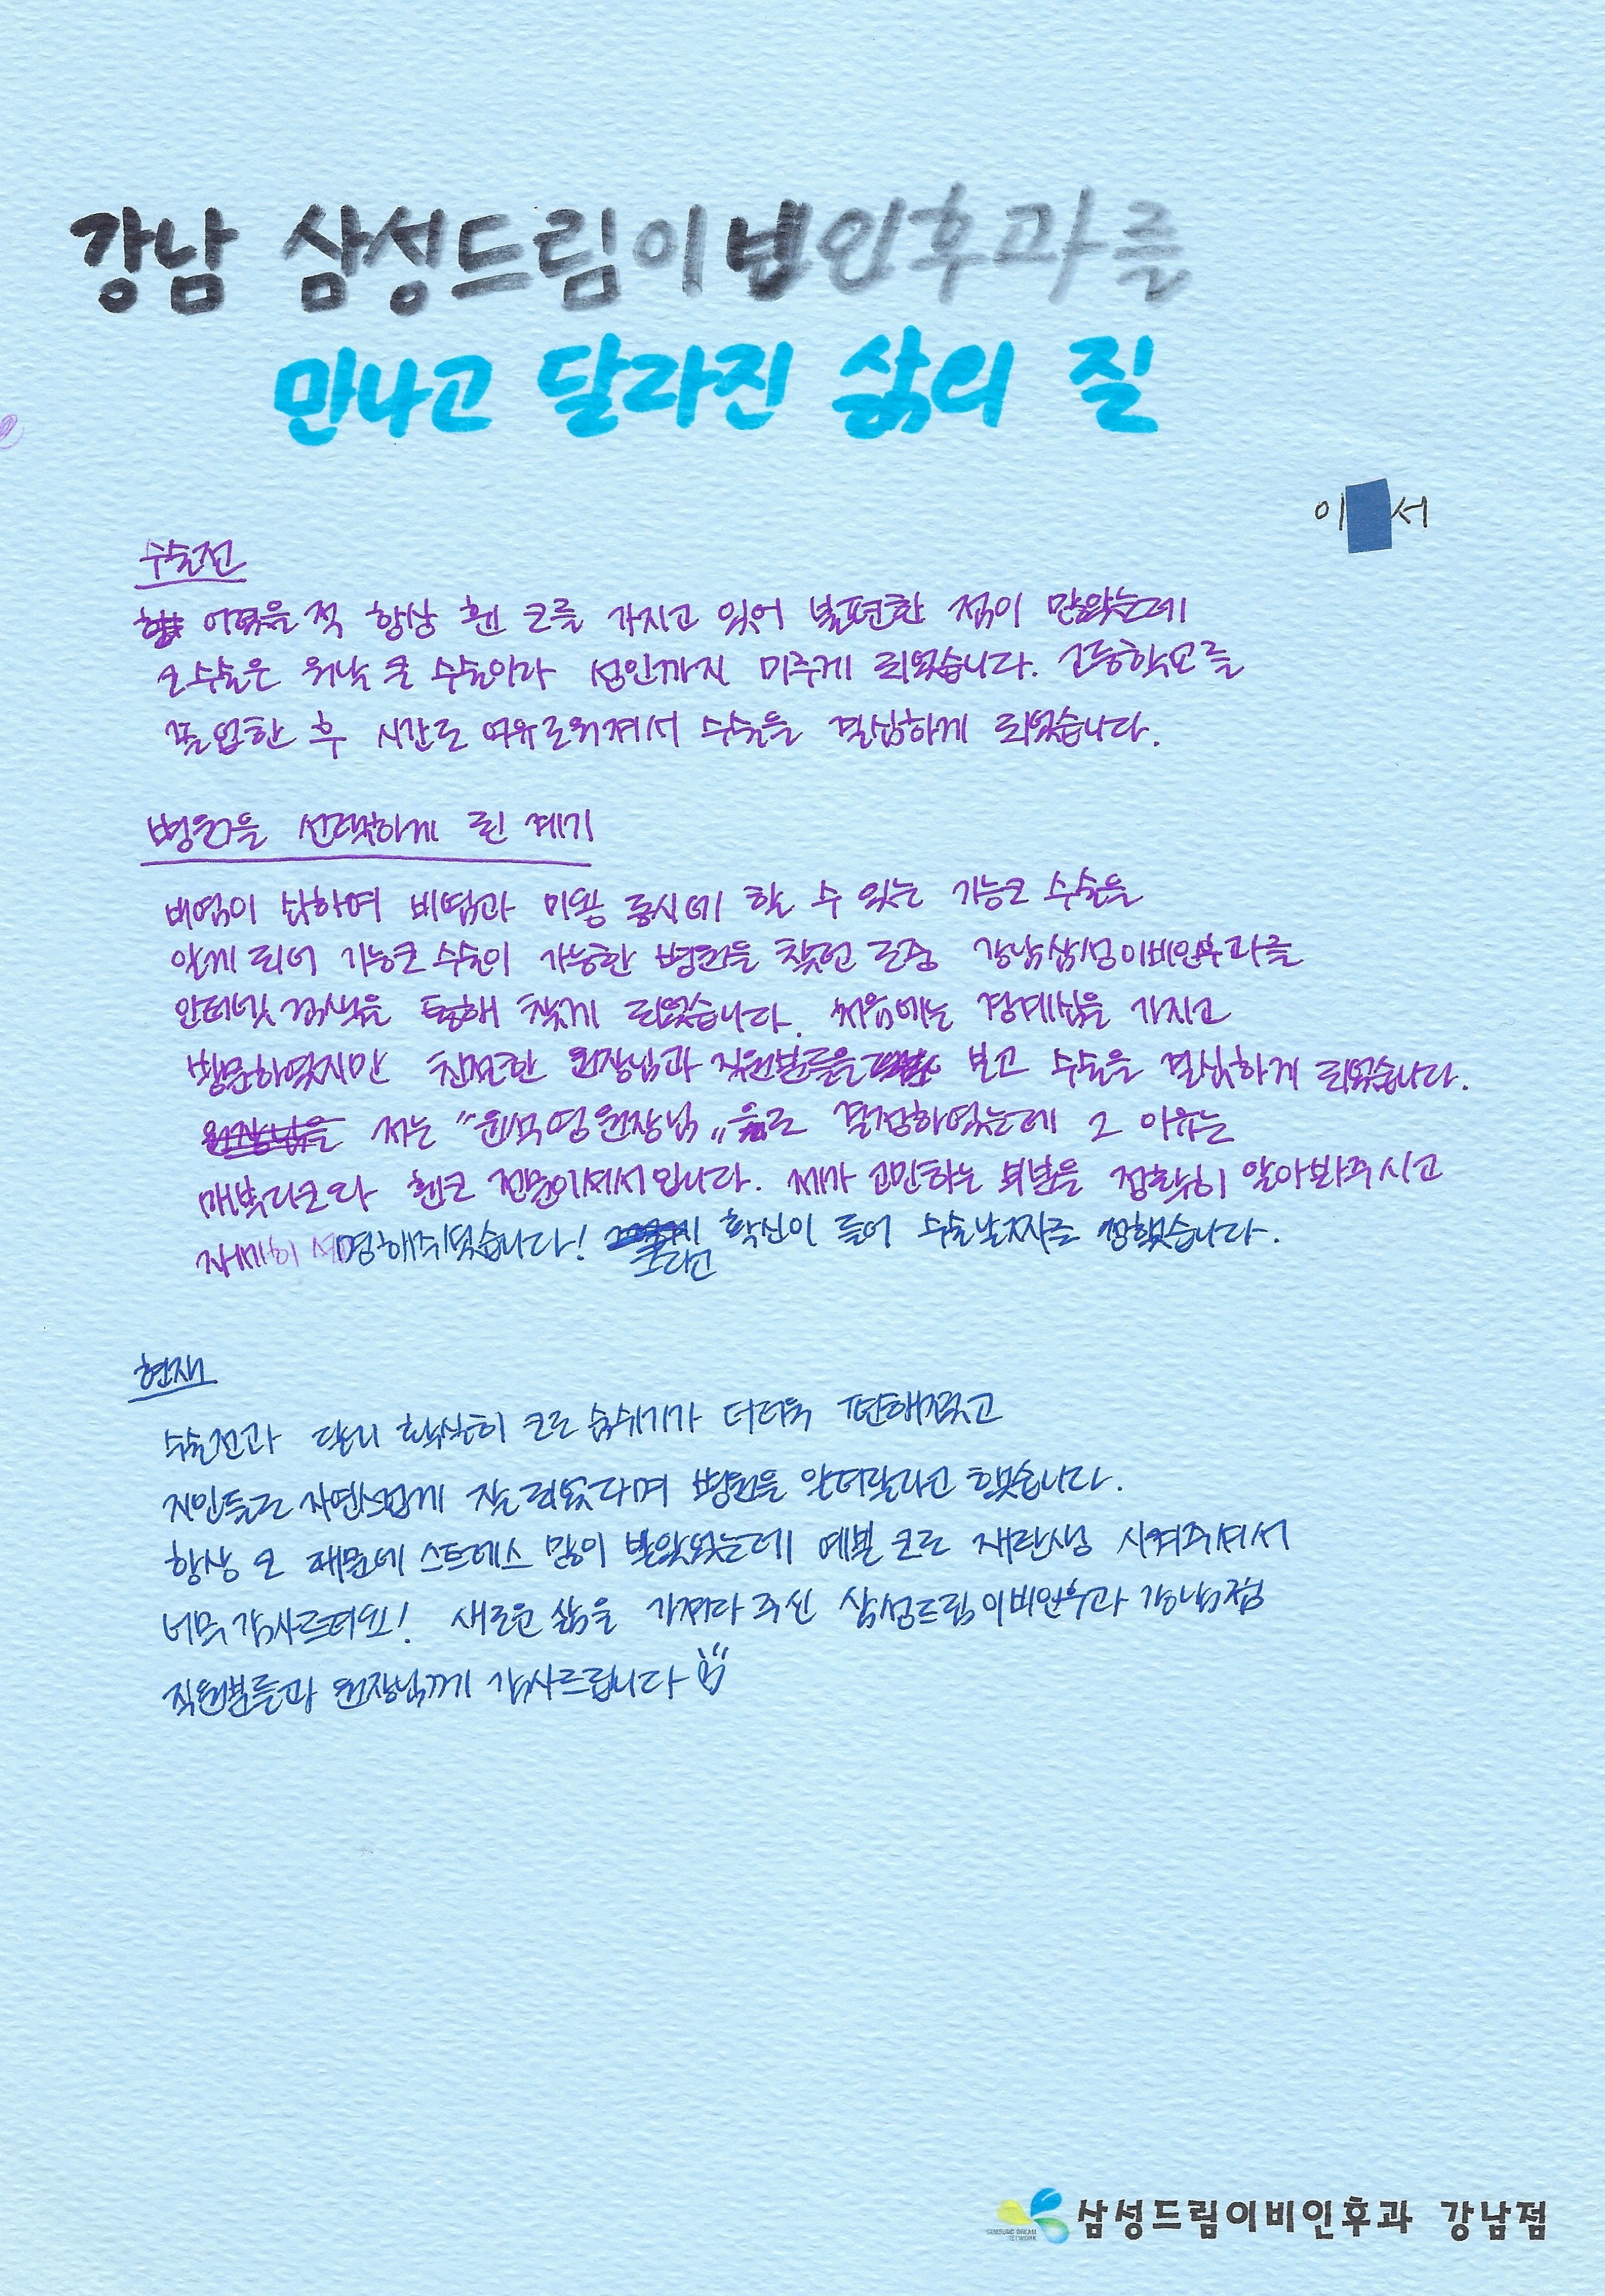 강남 삼성드림이빈인후과를
만나고 달라진 삶의 질
이 서
수술전
어렸을 적 항상 휜 코를 가지고 있어 불편한 점이 많았는데
코수술은 워낙 큰 수술이라 성인까지 미루게 되었습니다. 고등학교를
졸업한 후 시간도 여유로워져서 수술을 결심하게 되었습니다.
병원을 선택하게 된 계기
비염이 심하여 비염과 미용 동시에 할 수 있는 기능코 수술을
알게 되어 기능코 수술이 가능한 병원을 찾던 도중 강남삼성이비인후과를
인터넷 검색을 통해 찾게 되었습니다. 처음에는 경계심을 가지고
방문하였지만 친절한 원장님과 직원분들을 보고 수술을 결심하게 되었습니다.
저는 "윤석영원장님"으로 결정하였는데 그 이유는
매부리코와 휜코 전문이셔서입니다. 제가 고민하는 부분을 정확히 알아봐주시고
자세히 설명해주셨습니다! 그리고 확신이 들어 수술날짜를 정했습니다.
현재
수술전과 달리 확실히 코로 숨쉬기가 더더욱 편해졌고
지인들도 자연스럽게 잘 되었다며 병원을 알려달라고 했습니다.
항상 코 때문에 스트레스 많이 받았었는데 예쁜 코로 재탄생 시켜주셔서
너무 감사드려요! 새로운 삶을 가져다 주신 삼성드림이비인후과 강남점
직원분들과 원장님께 감사드립니다
SAMSUNG DREAM
NETWORK
삼성드림이비인후과 강남점